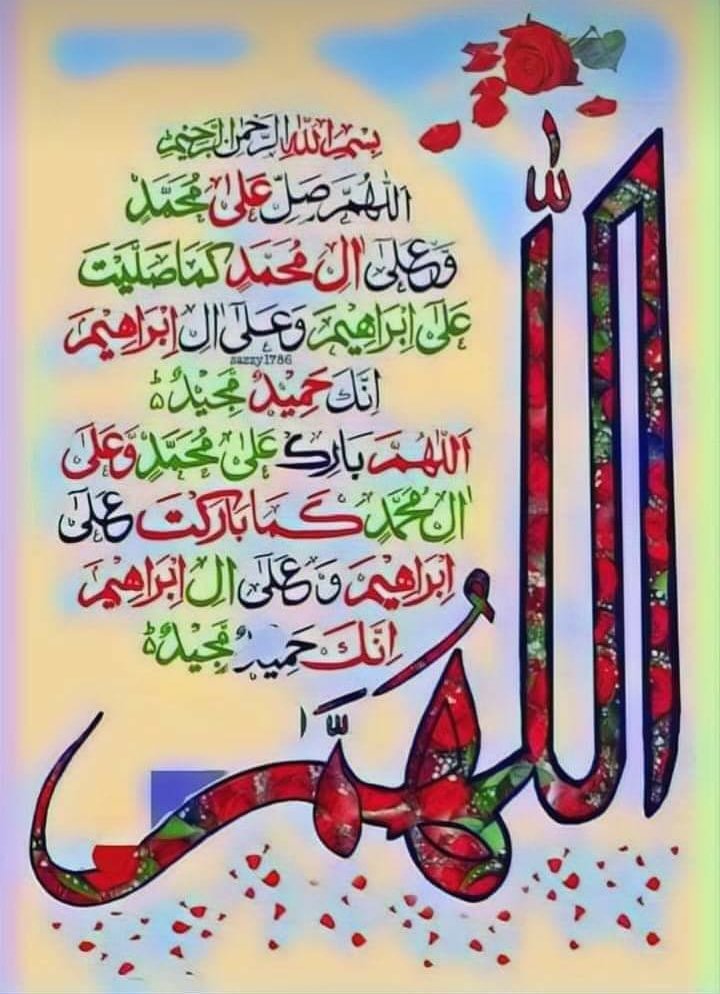 بِسْمِ اللهِ الرَّحْمٰنِ الرَّحِيْمِ
اَللّٰهُمَّ صَلِّ عَلٰى مُحَمَّدٍ
وَّعَلٰٓى اٰلِ مُحَمَّدٍ كَمَا صَلَّيْتَ
عَلٰٓى اِبْرَاهِيْمَ وَعَلٰٓى اٰلِ اِبْرَاهِيْمَ
sazzy1786
اِنَّكَ حَمِيْدٌ مَّجِيْدٌ ؕ
اَللّٰهُمَّ بَارِكْ عَلٰى مُحَمَّدٍ وَّعَلٰٓى
اٰلِ مُحَمَّدٍ كَمَا بَارَكْتَ عَلٰٓى
اِبْرَاهِيْمَ وَعَلٰٓى اٰلِ اِبْرَاهِيْمَ
اِنَّكَ حَمِيْدٌ مَّجِيْدٌ ؕ
اللهم